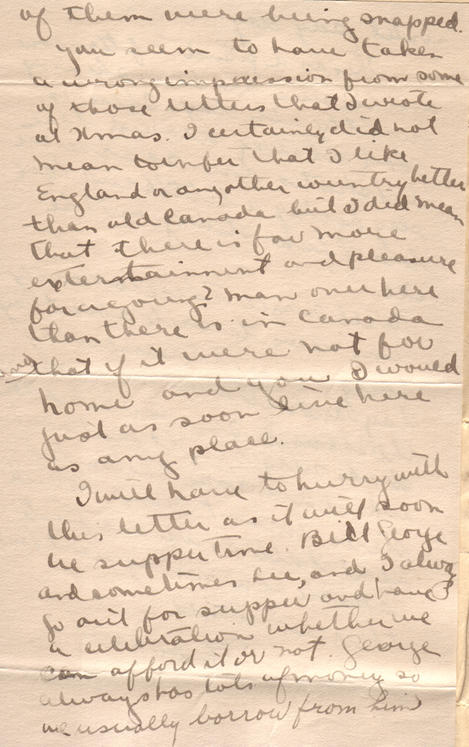 of them were being snapped.
you seem to have taken
a wrong impression from some
of those letters that I wrote
at Xmas. I certainly did not
mean to infer that I like
England or any other country better
than old Canada but I did mean
that there is far more
entertainment and pleasure
for a young man over here
than there is in Canada
and that if it were not for
home and you I would
just as soon live here
as any place.
I will have to hurry with
this letter as it will soon
be supper time. Bill George
and sometimes Lee, and I always
go out for supper and have
a celebration whether we
can afford it or not. George
always has lots of money so
we usually borrow from him